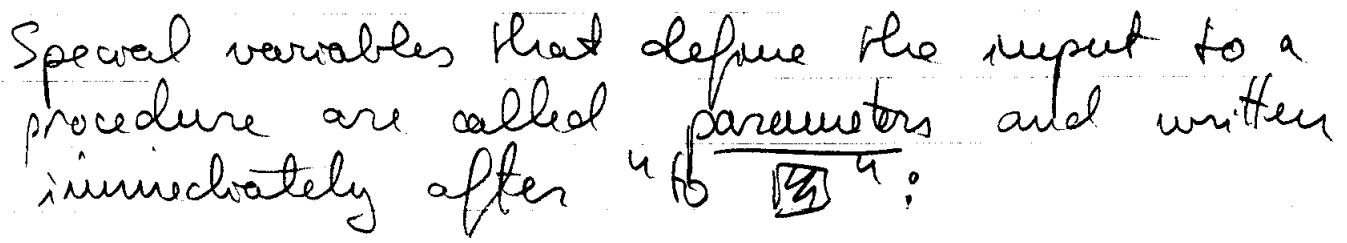 Special variables that define the input to a
procedure are called parameters and written
immediately after "to ":